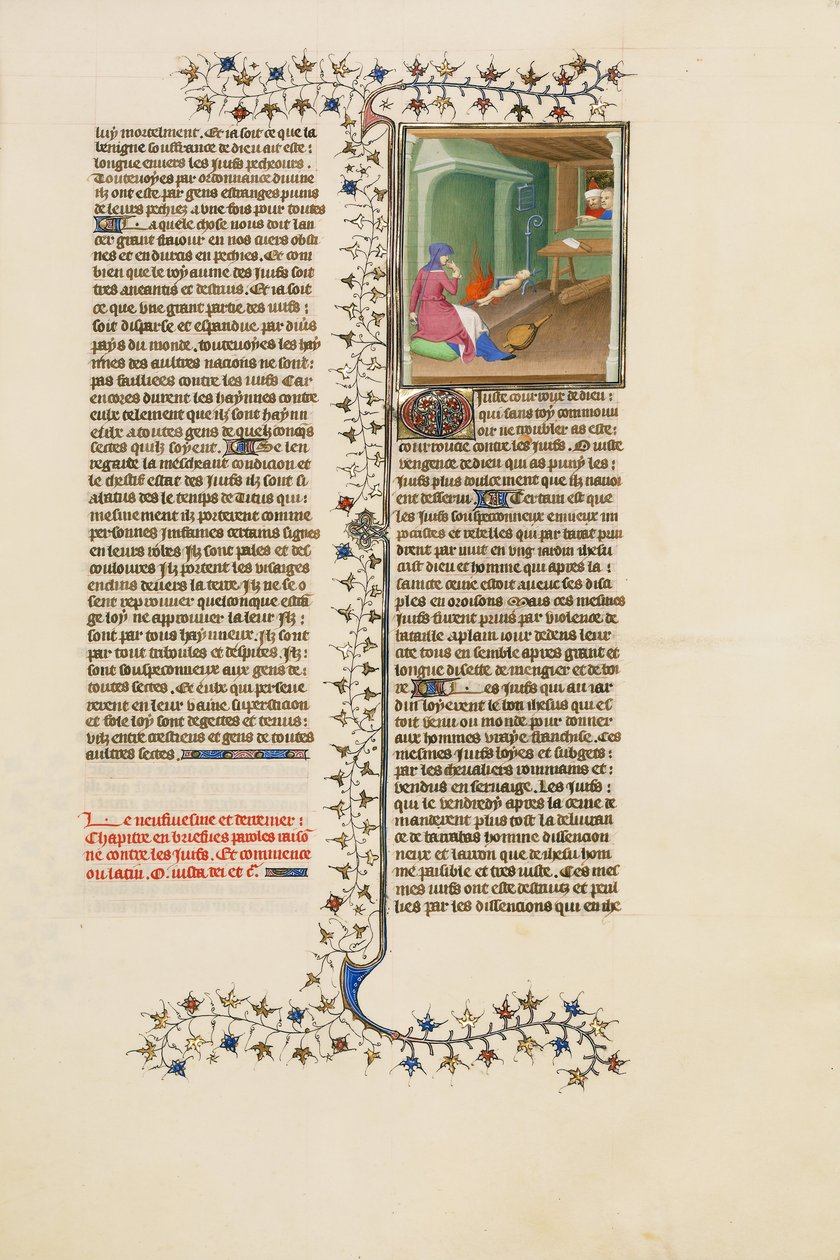 luy mortelment. Et ia soit ce que la
benigne souffrance de dieu ait este :
longue enuers les Juifs pecheours.
Toutevoyes par ordonnance diuine
ilz ont este par gens estranges punis
de leurs pechiez a vne fois pour toutes
Laquele chose nous doit lan
cer grant fraiour en nos cuers obsti
nes et endurcis en pechies. Et com
bien que le royaume des Juifs soit
tres aneantis et destruis. Et ia soit
ce que vne grant partie des iuifs :
soit disparse et espandue par diuers
pays du monde. toutevoyes les hay
nnes des aultres nacions ne sont :
pas faillies contre les iuifs Car
encores durent les haynnes contre
eulx telement que ilz sont haynn
eux a toutes gens de quelconqs
sectes quilz soyent. Se len
regarde la meschant condicion et
le chestif estat des Juifs ilz sont si
alatius des le temps de Titus qui :
mesmement ilz porterent comme
personnes infames certains signes
en leurs robes Ilz sont pales et des
coulourez Ilz portent les visaiges
enclins deuers la terre Ilz ne se o
sent reprouuer quelconque estra
ge loy ne approuuer la leur Ilz :
sont par tous haynneux. Ilz sont
par tout triboules et despites. Ilz :
sont souspeconneux aux gens de :
toutes sectes. Et eulx qui perseue
rerent en leur vaine supersticion
et fole loy sont degectes et tenus :
vilz entre crestiens et gens de toutes
aultres sectes.
Le neufuiesme et derrenier :
Chapitre en briefues paroles raiso
ne contre les Juifs. Et commence
ou latin. O. iusta dei et c.
O Juste courroux de dieu :
qui sans toy commouu
oir ne troubler as este :
courroucie contre les Juifs. O iuste
vengence de dieu qui as puny les :
Juifs plus doulcement que ilz nauoi
ent desserui. Certain est que
les Juifs souspeconneux enuieux im
pocrites et rebelles qui par barat prin
drent par nuit en vng iardin ihesu
crist dieu et homme qui apres la :
saincte cene estoit auec ses disci
ples en oroisons Mais ces mesmes
Juifs furent prins par violence de
bataille a plain iour dedens leur
cite tous en semble apres grant et
longue disette de mengier et de boi
re Les Juifs qui au iar
din loyerent le bon ihesus qui es
toit venu ou monde pour donner
aux hommes vraye franchise. Ces
mesmes Juifs loyes et subgets :
par les cheualiers rommains et :
vendus en seruaige. Les Juifs :
qui le vendredy apres la cene de
manderent plus tost la deliuran
ce de barrabas homme dissencion
neux et larron que de ihesu hom
me paisible et tres iuste. Ces mes
mes iuifs ont este destruis et peril
lies par les dissencions qui en ihe